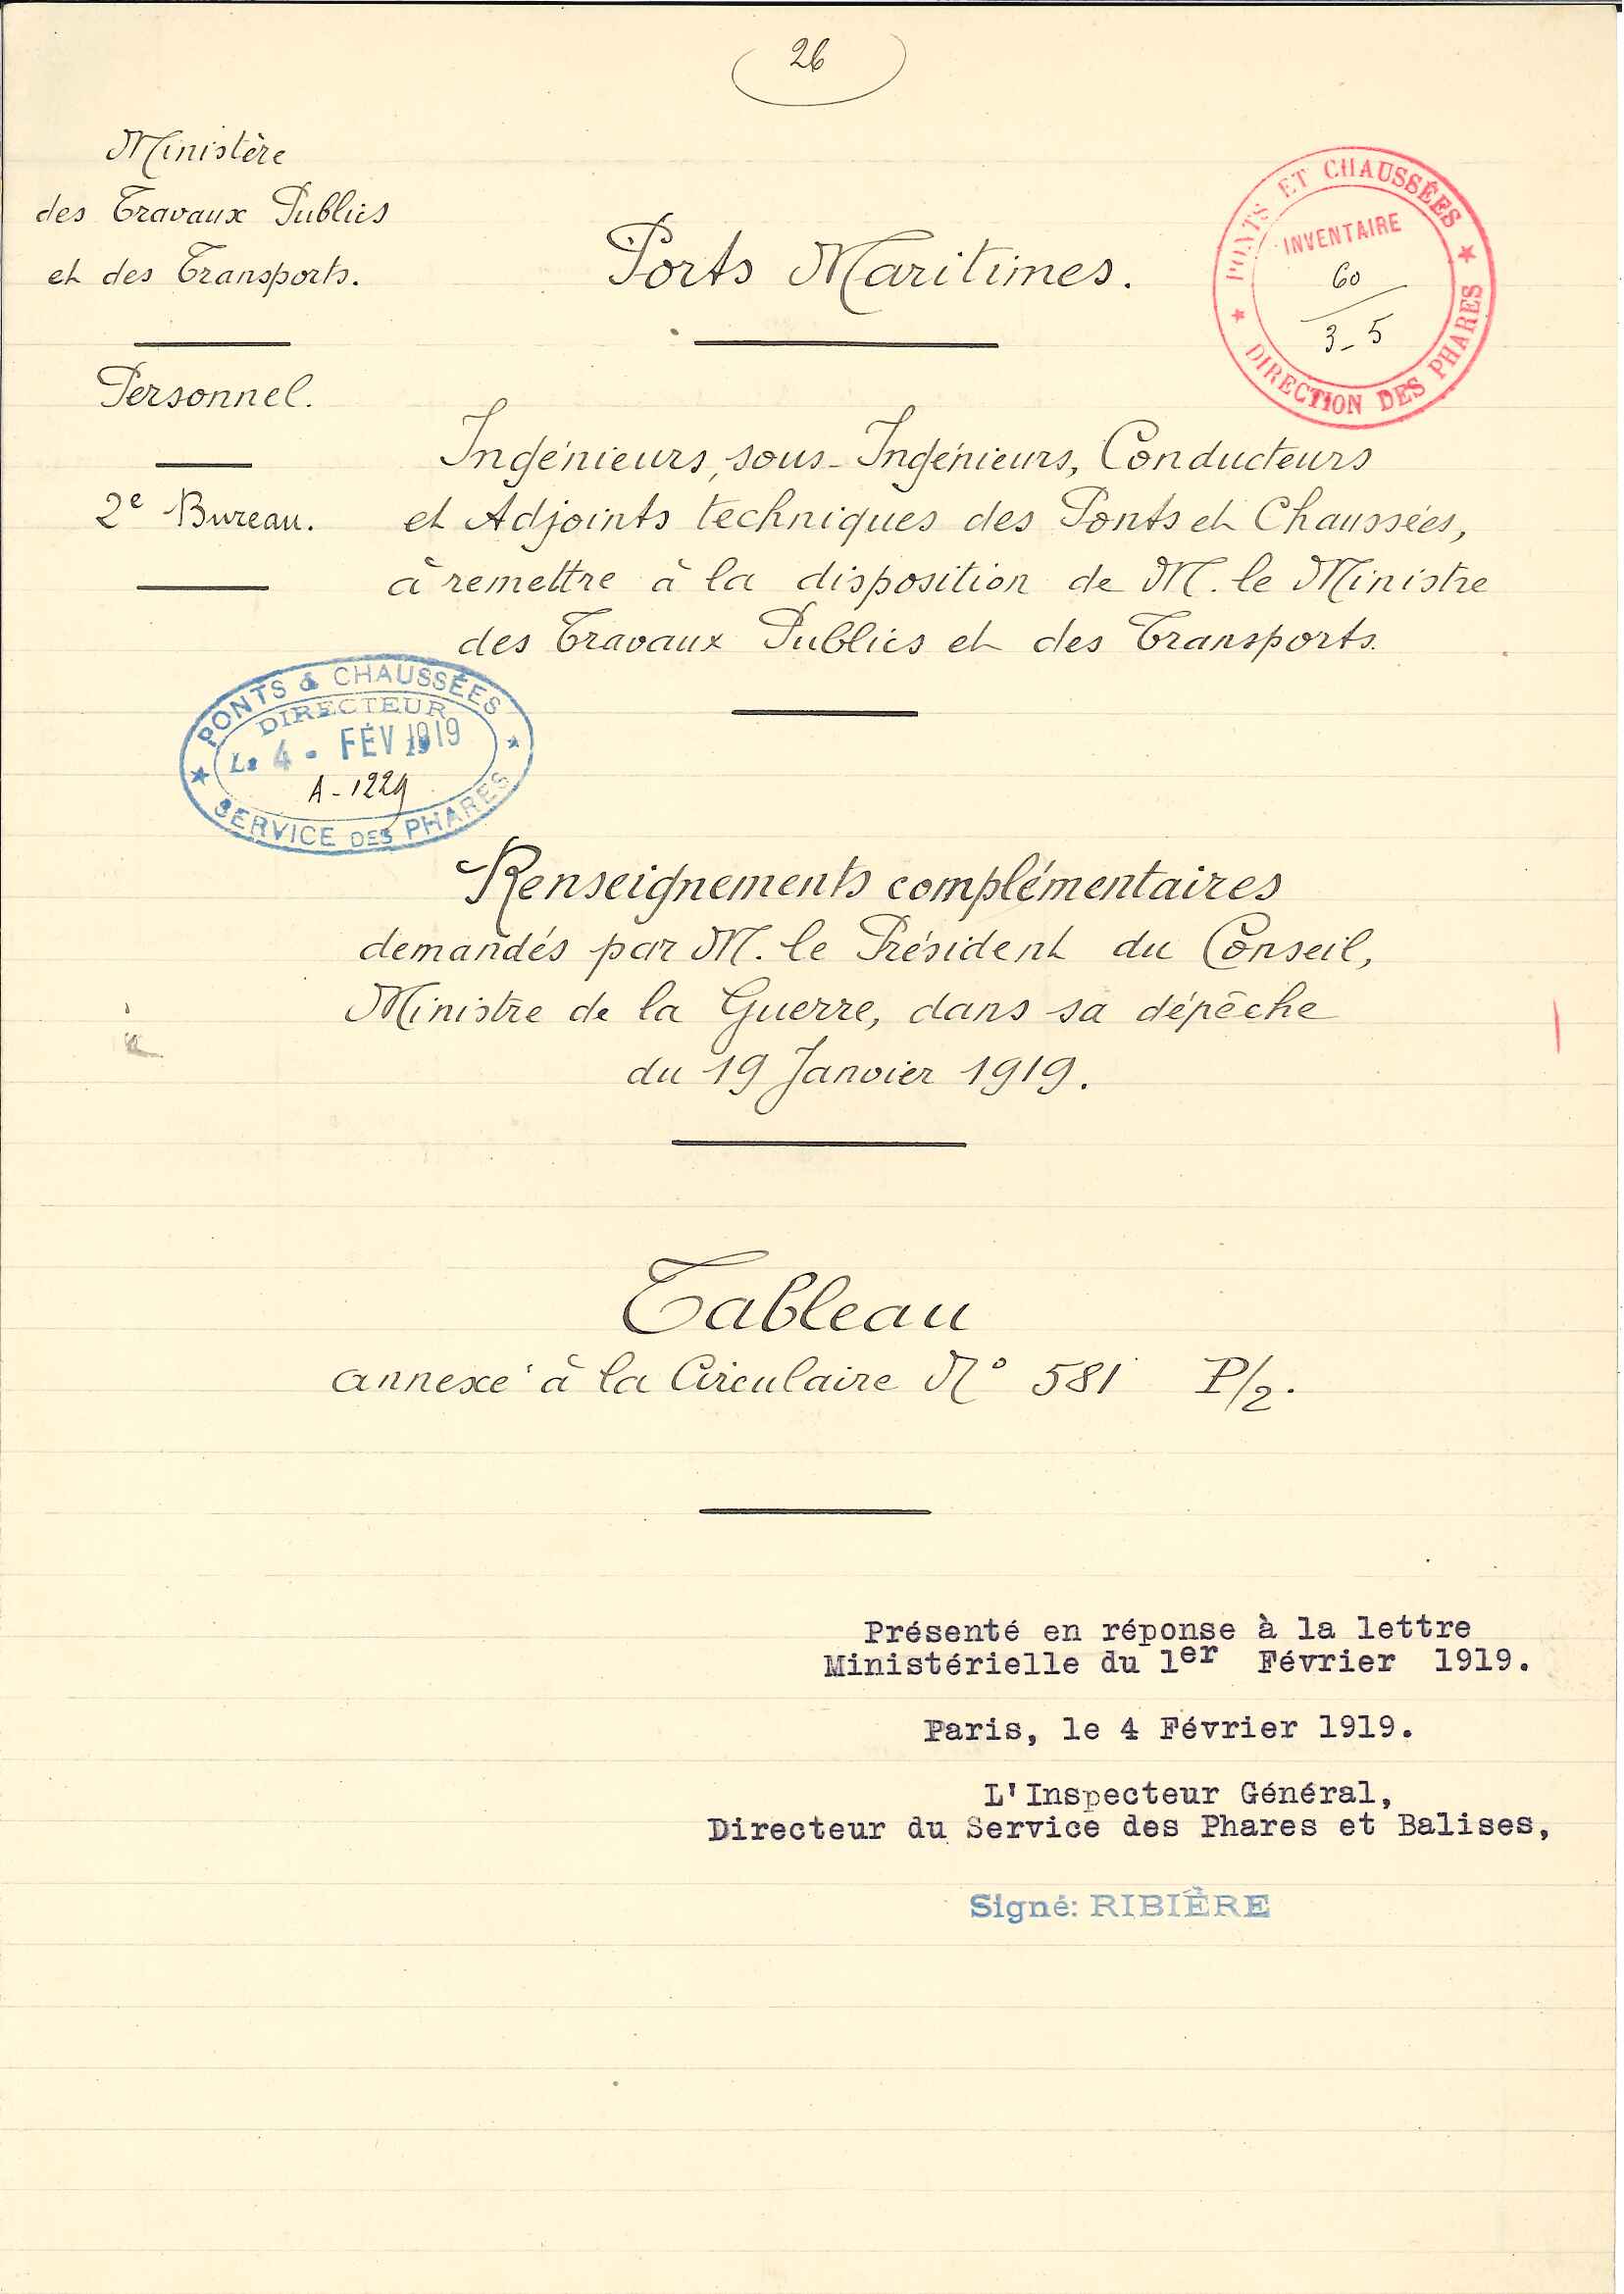 26
Ministère
des Travaux Publics
et des Transports.
Personnel.
2e Bureau.
Ports Maritimes.
PONTS ET CHAUSSÉES
INVENTAIRE
60
3_5
DIRECTION DES PHARES
Ingénieurs, sous-Ingénieurs, Conducteurs
et Adjoints techniques des Ponts et Chaussées,
à remettre à la disposition de M. le Ministre
des Travaux Publics et des Transports.
PONTS & CHAUSSÉES
DIRECTEUR
Le 4 - FÉV 1919
A-1229
SERVICE DES PHARES
Renseignements complémentaires
demandés par M. le Président du Conseil,
Ministre de la Guerre, dans sa dépêche
du 19 Janvier 1919.
Tableau
annexé à la Circulaire N° 581 P/2.
Présenté en réponse à la lettre
Ministérielle du 1er Février 1919.
Paris, le 4 Février 1919.
L'Inspecteur Général,
Directeur du Service des Phares et Balises,
Signé: RIBIÈRE